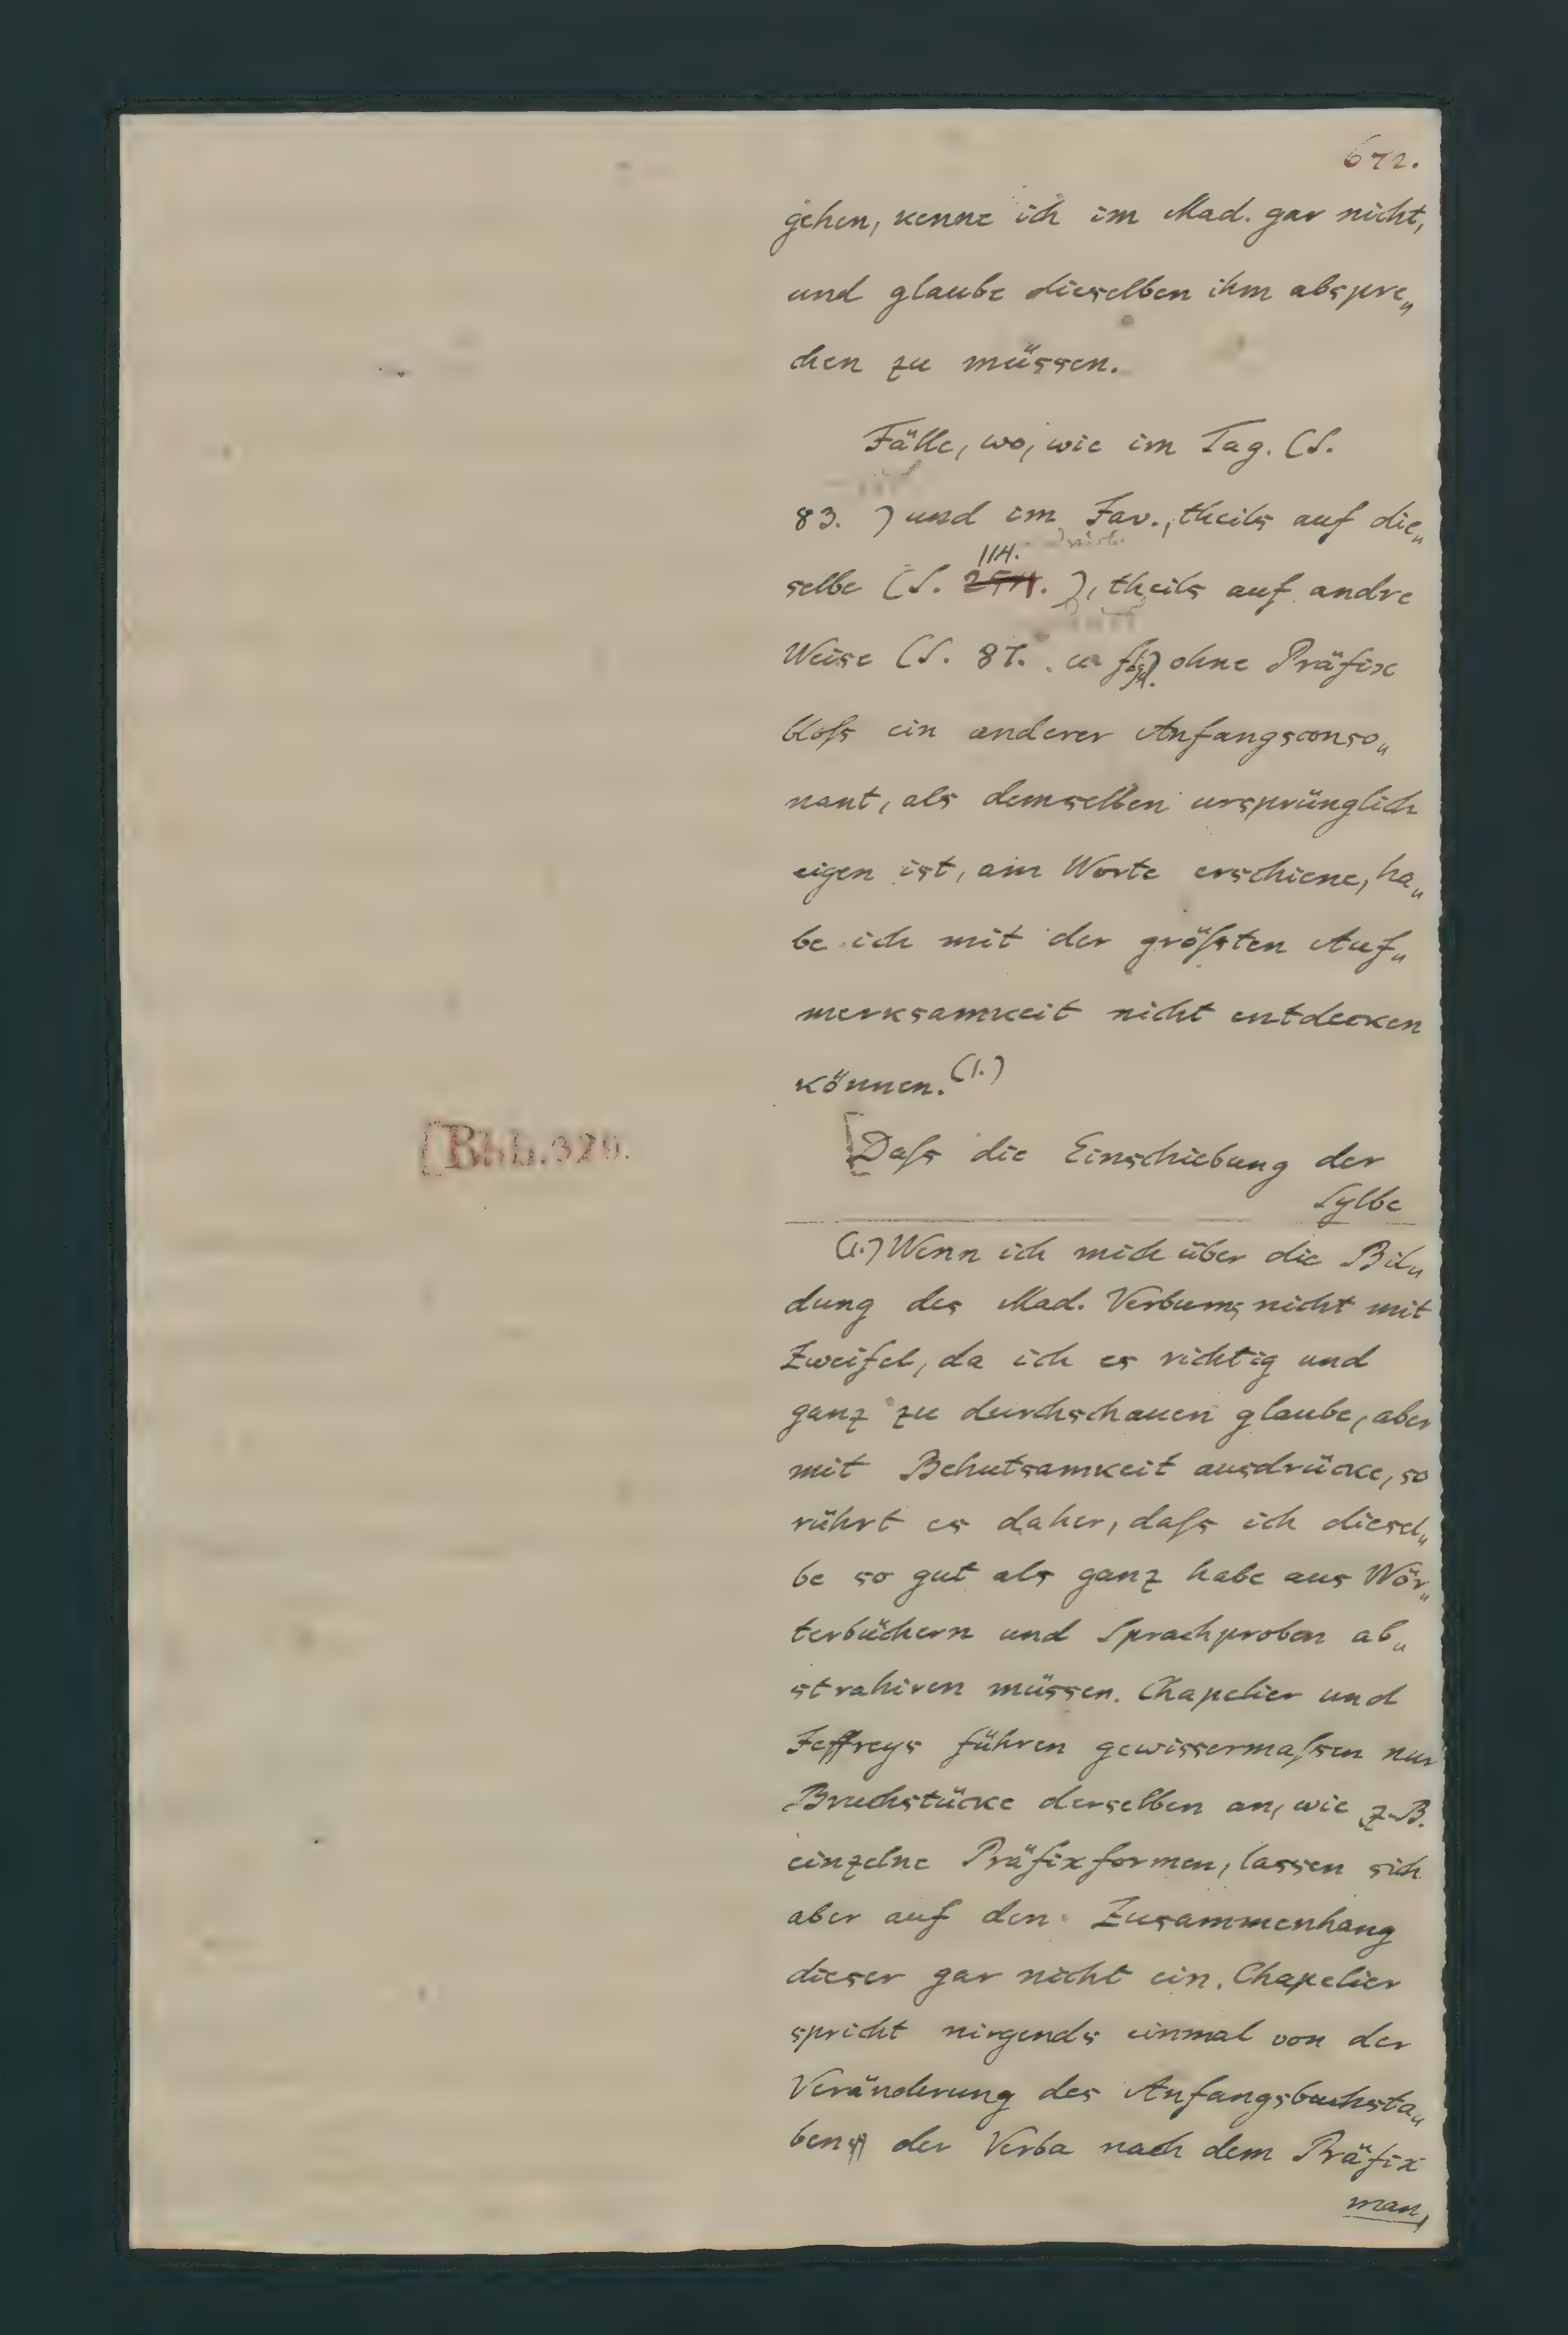 672.
gehen, kenne ich im Mad. gar nicht,
und glaube dieselben ihm abspre„
chen zu müssen.
Fälle, wo, wie im Tag. (S.
83. ) und im Jav., theils auf die„
114.
selbe (S. ), theils auf andre
Weise (S. 87. ohne Präfix
bloſs ein anderer Anfangsconso„
nant, als demselben ursprünglich
eigen ist, am Worte erschiene, ha„
be ich mit der gröſsten Auf„
merksamkeit nicht entdecken
können.(1.)
[Bhb.320.
[Daſs die Einschiebung der
Sylbe
(1.) Wenn ich mich über die Bil„
dung des Mad. Verbums nicht mit
Zweifel, da ich es richtig und
ganz zu durchschauen glaube, aber
mit Behutsamkeit ausdrücke, so
rührt es daher, daſs ich diesel„
be so gut als ganz habe aus Wör„
terbüchern und Sprachproben ab„
strahiren müssen. Chapelier und
Jeffreys führen gewissermaſsen nur
Bruchstücke derselben an, wie z. B.
einzelne Präfixformen, lassen sich
aber auf den Zusammenhang
dieser gar nicht ein. Chapelier
spricht nirgends einmal von der
Veränderung des Anfangsbuchsta„
ben der Verba nach dem Präfix
man,